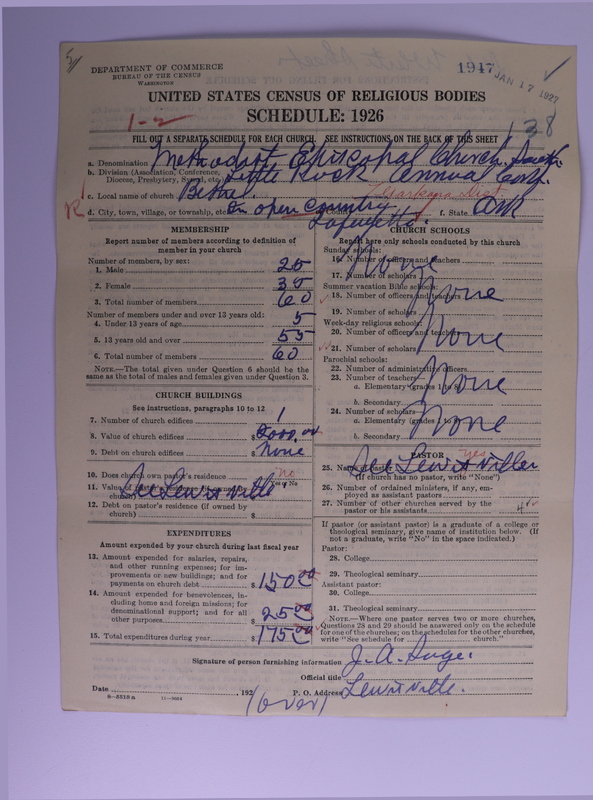 DEPARTMENT OF COMMERCE
BUREAU OF THE CENSUS
WASHINGTON
1947
JAN 17 1927
UNITED STATES CENSUS OF RELIGIOUS BODIES
SCHEDULE: 1926
1-2
138
FILL OUT A SEPARATE SCHEDULE FOR EACH CHURCH. SEE INSTRUCTIONS ON THE BACK OF THIS SHEET
a. Denomination Methodist Episcopal Church, South.
b. Division (Association, Conference, Diocese, Presbytery, Synod, etc.) Little Rock Annual Conf.
c. Local name of church Bethel. Texarkana Dist
R
d. City, town, village, or township, etc. In open country Lafayette. f. State Ark
MEMBERSHIP
Report number of members according to definition of
member in your church
Number of members, by sex:
1. Male 25
2. Female 35
3. Total number of members 60
Number of members under and over 13 years old:
4. Under 13 years of age 5
5. 13 years old and over 55
6. Total number of members 60
NOTE.—The total given under Question 6 should be the
same as the total of males and females given under Question 3.
CHURCH BUILDINGS
See instructions, paragraphs 10 to 12
7. Number of church edifices 1
8. Value of church edifices $
9. Debt on church edifices $ None
10. Does church own pastor's residence no
Yes or No
11. Value of pastor's residence (if owned by
church) See Lewisville
12. Debt on pastor's residence (if owned by
church) $
EXPENDITURES
Amount expended by your church during last fiscal year
13. Amount expended for salaries, repairs,
and other running expenses; for im-
provements or new buildings; and for
payments on church debt $ 150 00
14. Amount expended for benevolences, in-
cluding home and foreign missions; for
denominational support; and for all
other purposes $ 25 00
15. Total expenditures during year $ 175 00
CHURCH SCHOOLS
Report here only schools conducted by this church
Sunday schools:
16. Number of officers and teachers
17. Number of scholars None
Summer vacation Bible schools:
18. Number of officers and teachers None
19. Number of scholars
Week-day religious schools:
20. Number of officers and teachers
21. Number of scholars None
Parochial schools:
22. Number of administrative officers
23. Number of teachers:
a. Elementary (grades 1 to 8) None
b. Secondary
24. Number of scholars:
a. Elementary (grades 1 to 8) None
b. Secondary
PASTOR
yes
25. Name of pastor See Lewisville
(If church has no pastor, write "None")
26. Number of ordained ministers, if any, em-
ployed as assistant pastors
27. Number of other churches served by the
pastor or his assistants 4
If pastor (or assistant pastor) is a graduate of a college or
theological seminary, give name of institution below. (If
not a graduate, write "No" in the space indicated.)
Pastor:
28. College
29. Theological seminary
Assistant pastor:
30. College
31. Theological seminary
NOTE.—Where one pastor serves two or more churches,
Questions 28 and 29 should be answered only on the schedule
for one of the churches; on the schedules for the other churches,
write "See schedule for church."
Signature of person furnishing information J. A. Sage.
Official title
Date , 192
P. O. Address Lewisville.
8-5518a
11-9054
(over)